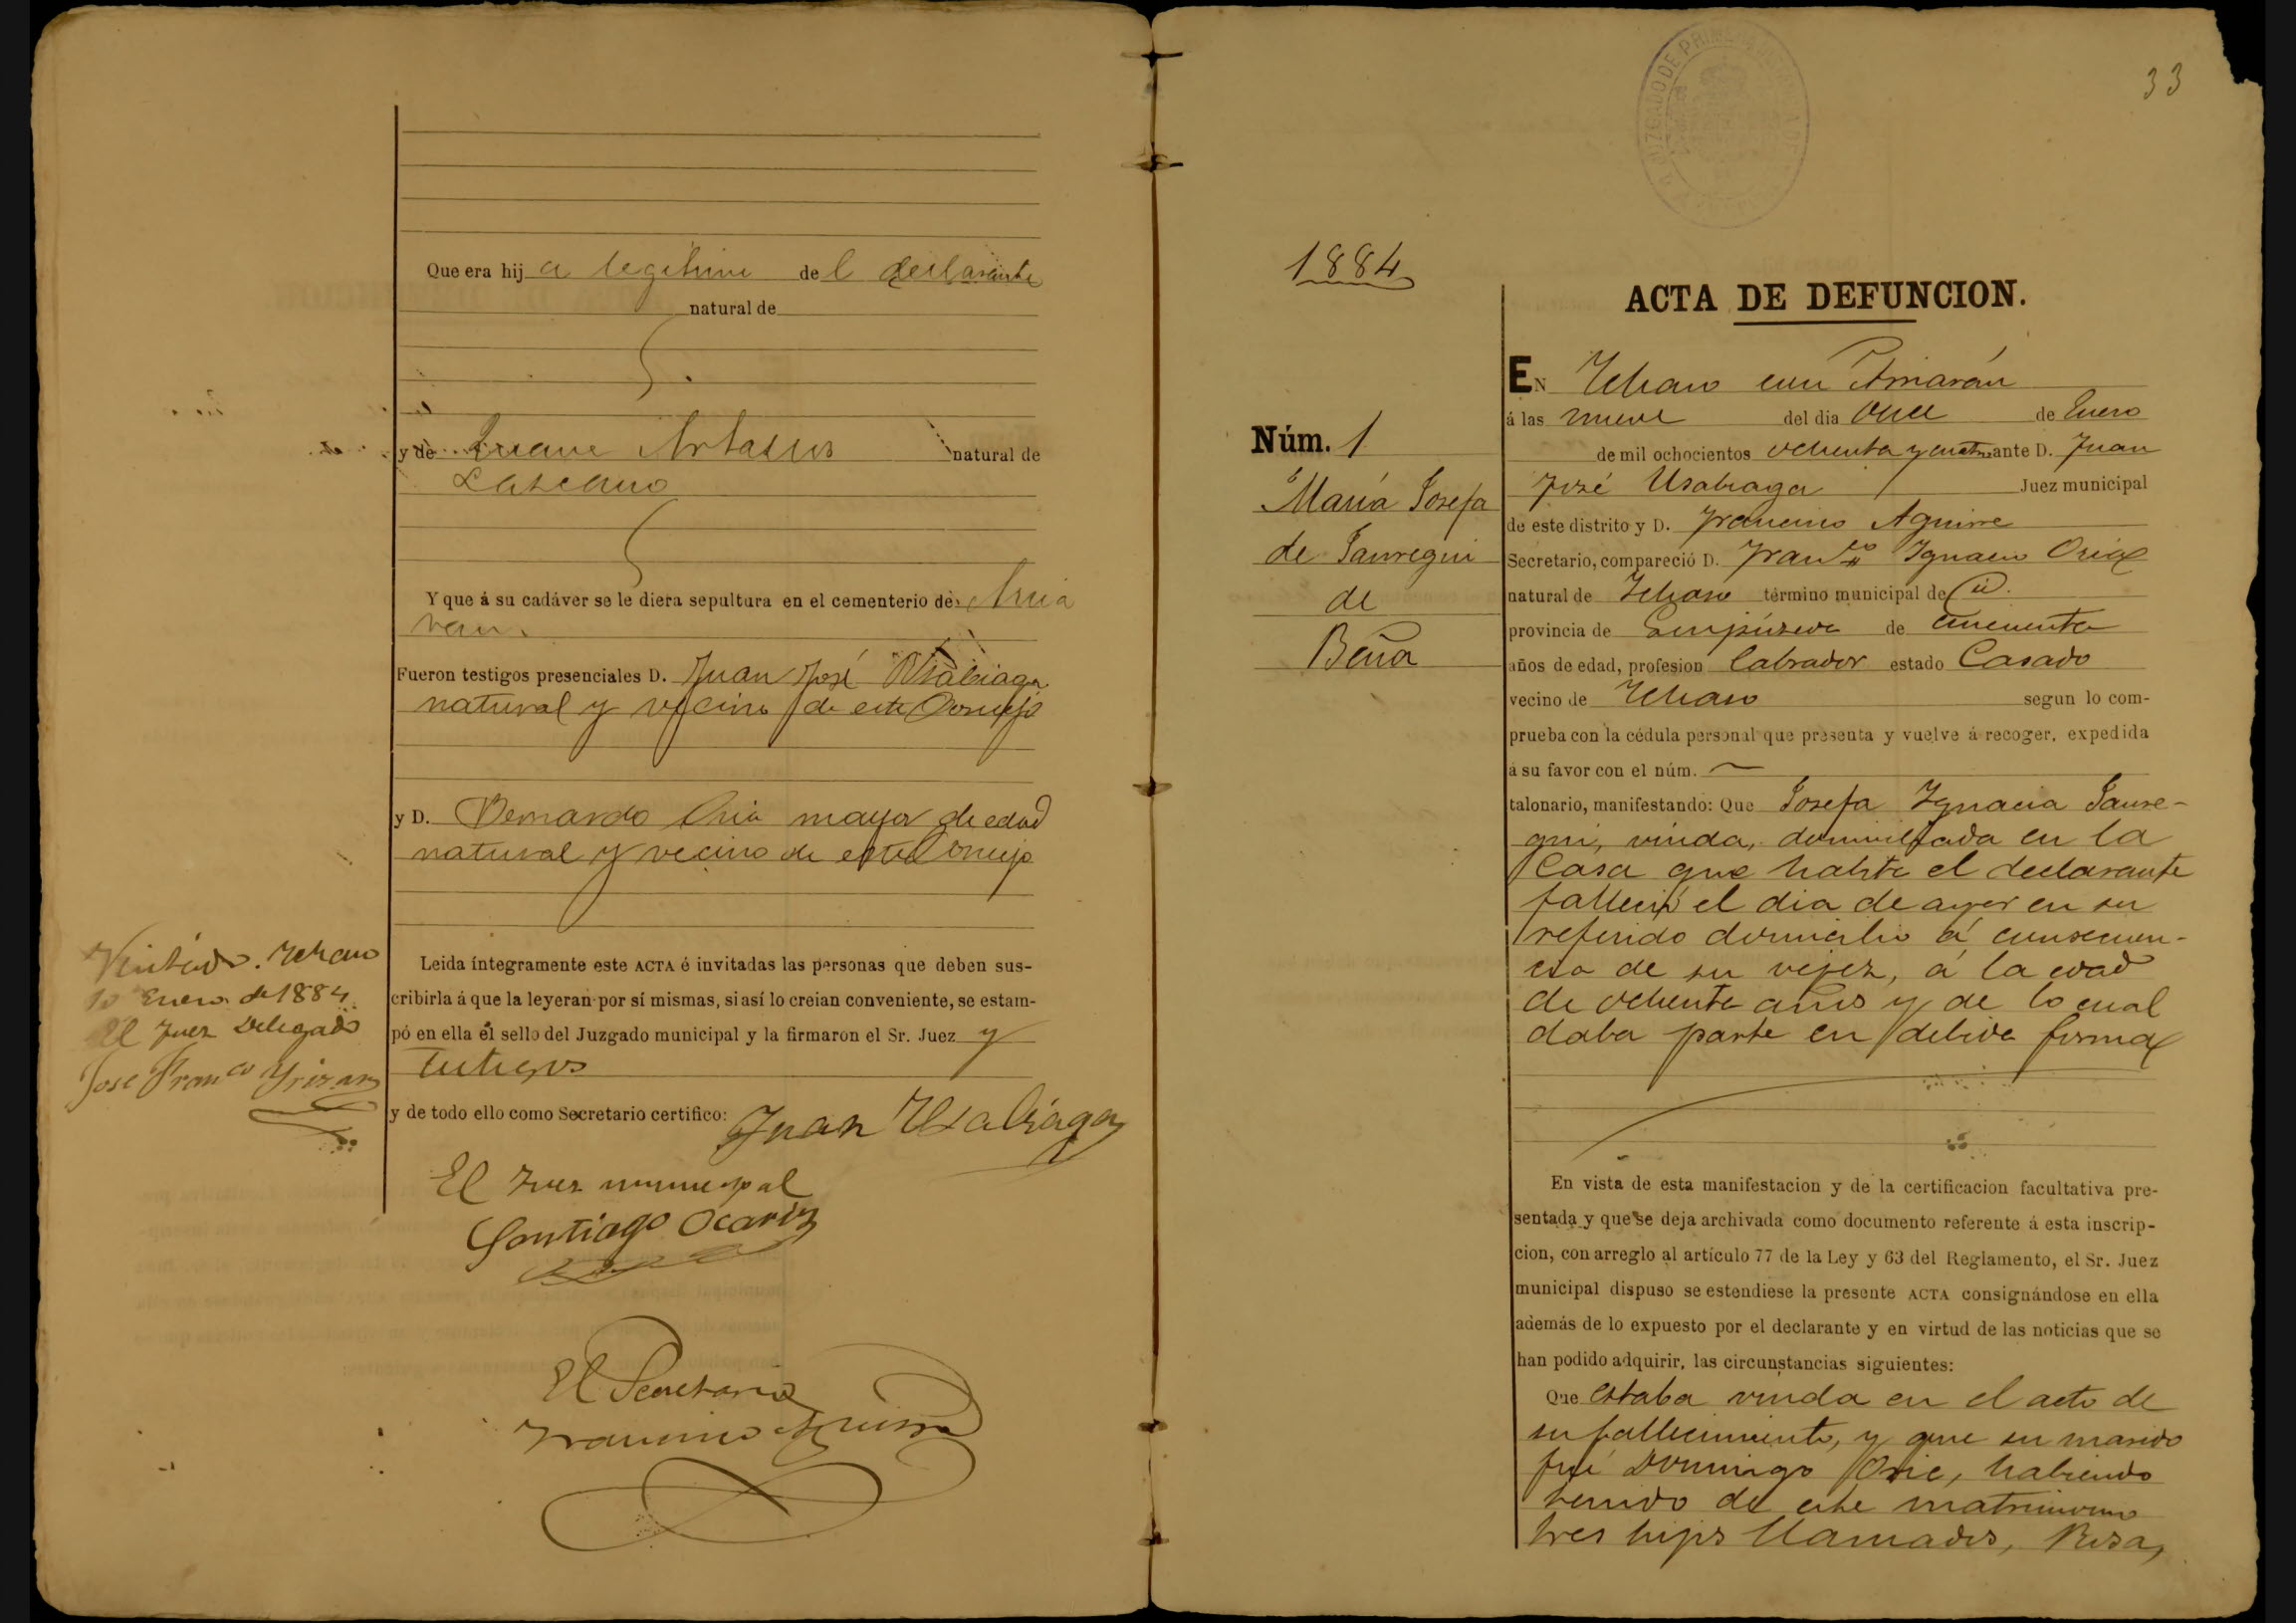 Que era hija legitima del declarante
natural de
y de Artasus natural de
Lazcano
Y que á su cadáver se le diera sepultura en el cementerio de Arria
ran.
Fueron testigos presenciales D. Juan José Usabiaga
natural y vecino de este Concejo
y D. Bernardo Oria mayor de edad
natural y vecino de este Concejo
Visitado. Ichaso
10 Enero de 1884.
El Juez Delegado
Jose Franco Yrizar
Leida íntegramente este ACTA é invitadas las personas que deben sus-
cribirla á que la leyeran por sí mismas, si así lo creian conveniente, se estam-
pó en ella el sello del Juzgado municipal y la firmaron el Sr. Juez y
Testigos
y de todo ello como Secretario certifico: Juan Usabiaga
El Juez municipal
Santiago Ocariz
El Secretario
Francisco Aguirre
33
1884
ACTA DE DEFUNCION.
Núm. 1
María Josefa
de Jauregui
de
Beña
EN Ichaso con Arriarán
á las nueve del dia once de Enero
de mil ochocientos ochenta y cuatro ante D. Juan
José Usabiaga Juez municipal
de este distrito y D. Francisco Aguirre
Secretario, compareció D. Franco Ygnacio Oria
natural de Ichaso término municipal de id.
provincia de Guipúzcoa de cincuenta
años de edad, profesion labrador estado Casado
vecino de Ichaso segun lo com-
prueba con la cédula personal que presenta y vuelve á recoger, expedida
á su favor con el núm. ~
talonario, manifestando: Que Josefa Ygnacia Jaure-
gui, viuda, domiciliada en la
Casa que habita el declarante
falleció el dia de ayer en su
referido domicilio á consecuen-
cia de su vejez, á la edad
de ochenta años y de lo cual
daba parte en debida forma
En vista de esta manifestacion y de la certificacion facultativa pre-
sentada y que se deja archivada como documento referente á esta inscrip-
cion, con arreglo al artículo 77 de la Ley y 63 del Reglamento, el Sr. Juez
municipal dispuso se estendiese la presente ACTA consignándose en ella
además de lo expuesto por el declarante y en virtud de las noticias que se
han podido adquirir, las circunstancias siguientes:
Que estaba viuda en el acto de
su fallecimiento, y que su marido
fué Domingo Oria, habiendo
tenido de este matrimonio
tres hijos llamados, Rosa,